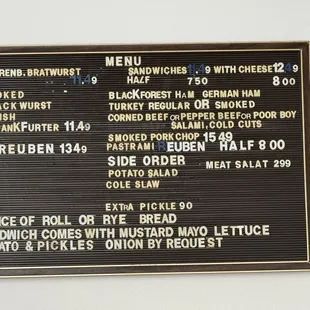 MENU
RENB. BRATWURST 11.49
SANDWICHES 11.49 WITH CHEESE 12.49
HALF 750 800
OKED
ACK WURST
ISH
ANKFURTER 11.49
REUBEN 1349
BLACKFOREST HAM GERMAN HAM
TURKEY REGULAR OR SMOKED
CORNED BEEF OR PEPPER BEEF OR POOR BOY
SALAMI, COLD CUTS
SMOKED PORK CHOP 15 49
PASTRAMI REUBEN HALF 8 00
SIDE ORDER MEAT SALAT 299
POTATO SALAD
COLE SLAW
EXTRA PICKLE 90
ICE OF ROLL OR RYE BREAD
DWICH COMES WITH MUSTARD MAYO LETTUCE
ATO & PICKLES ONION BY REQUEST